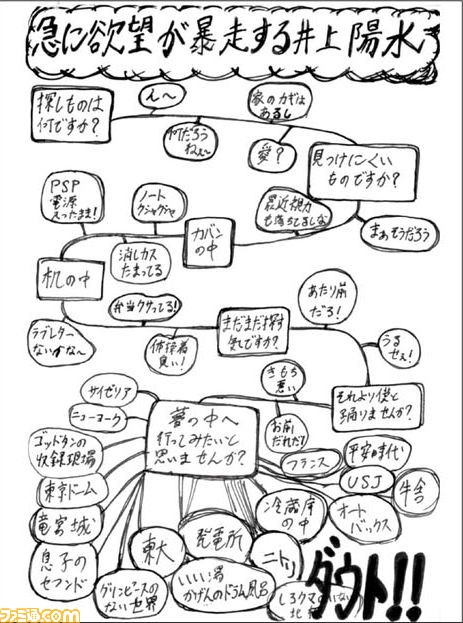 急に欲望が暴走する井上陽水
探しものは
何ですか?
え〜
何だろう
ねぇ〜
家のカギは
あるし
愛?
見つけにくい
ものですか?
まぁそうだろう
最近視力
も落ちてるしな
カバン
の中
ノート
グシャグシャ
消しカス
たまってる
PSP
電源
入ったまま!
机の中
ラブレター
ないかな〜
弁当クサってる!
体操着
臭い!
まだまだ探す
気ですか?
あたり前
だろ!
うる
せぇ!
それより僕と
踊りませんか?
きもち
悪い
お前
だれだ!
夢の中へ
行ってみたいと
思いませんか?
サイゼリア
ニューヨーク
ゴッドタンの
収録現場
東京ドーム
竜宮城
息子の
セカンド
グリンピースの
ない世界
東大
いい湯
かげんのドラム風呂
発電所
ニトリ
冷蔵庫
の中
フランス
平安時代
USJ
牛舎
オート
バックス
シロクマのいない
北極
ダウト!!
ファミ通.com